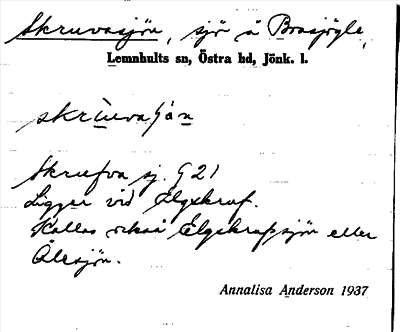 Skruvasjön, sjö å Brasjögle,
Lemnhults sn, Östra hd, Jönk. l.
skrùvaʃón
Skrufva sj. G 21
Ligger vid Elgskruf.
Kallas också Elgskrufsjön eller
Ålesjön.
Annalisa Anderson 1937